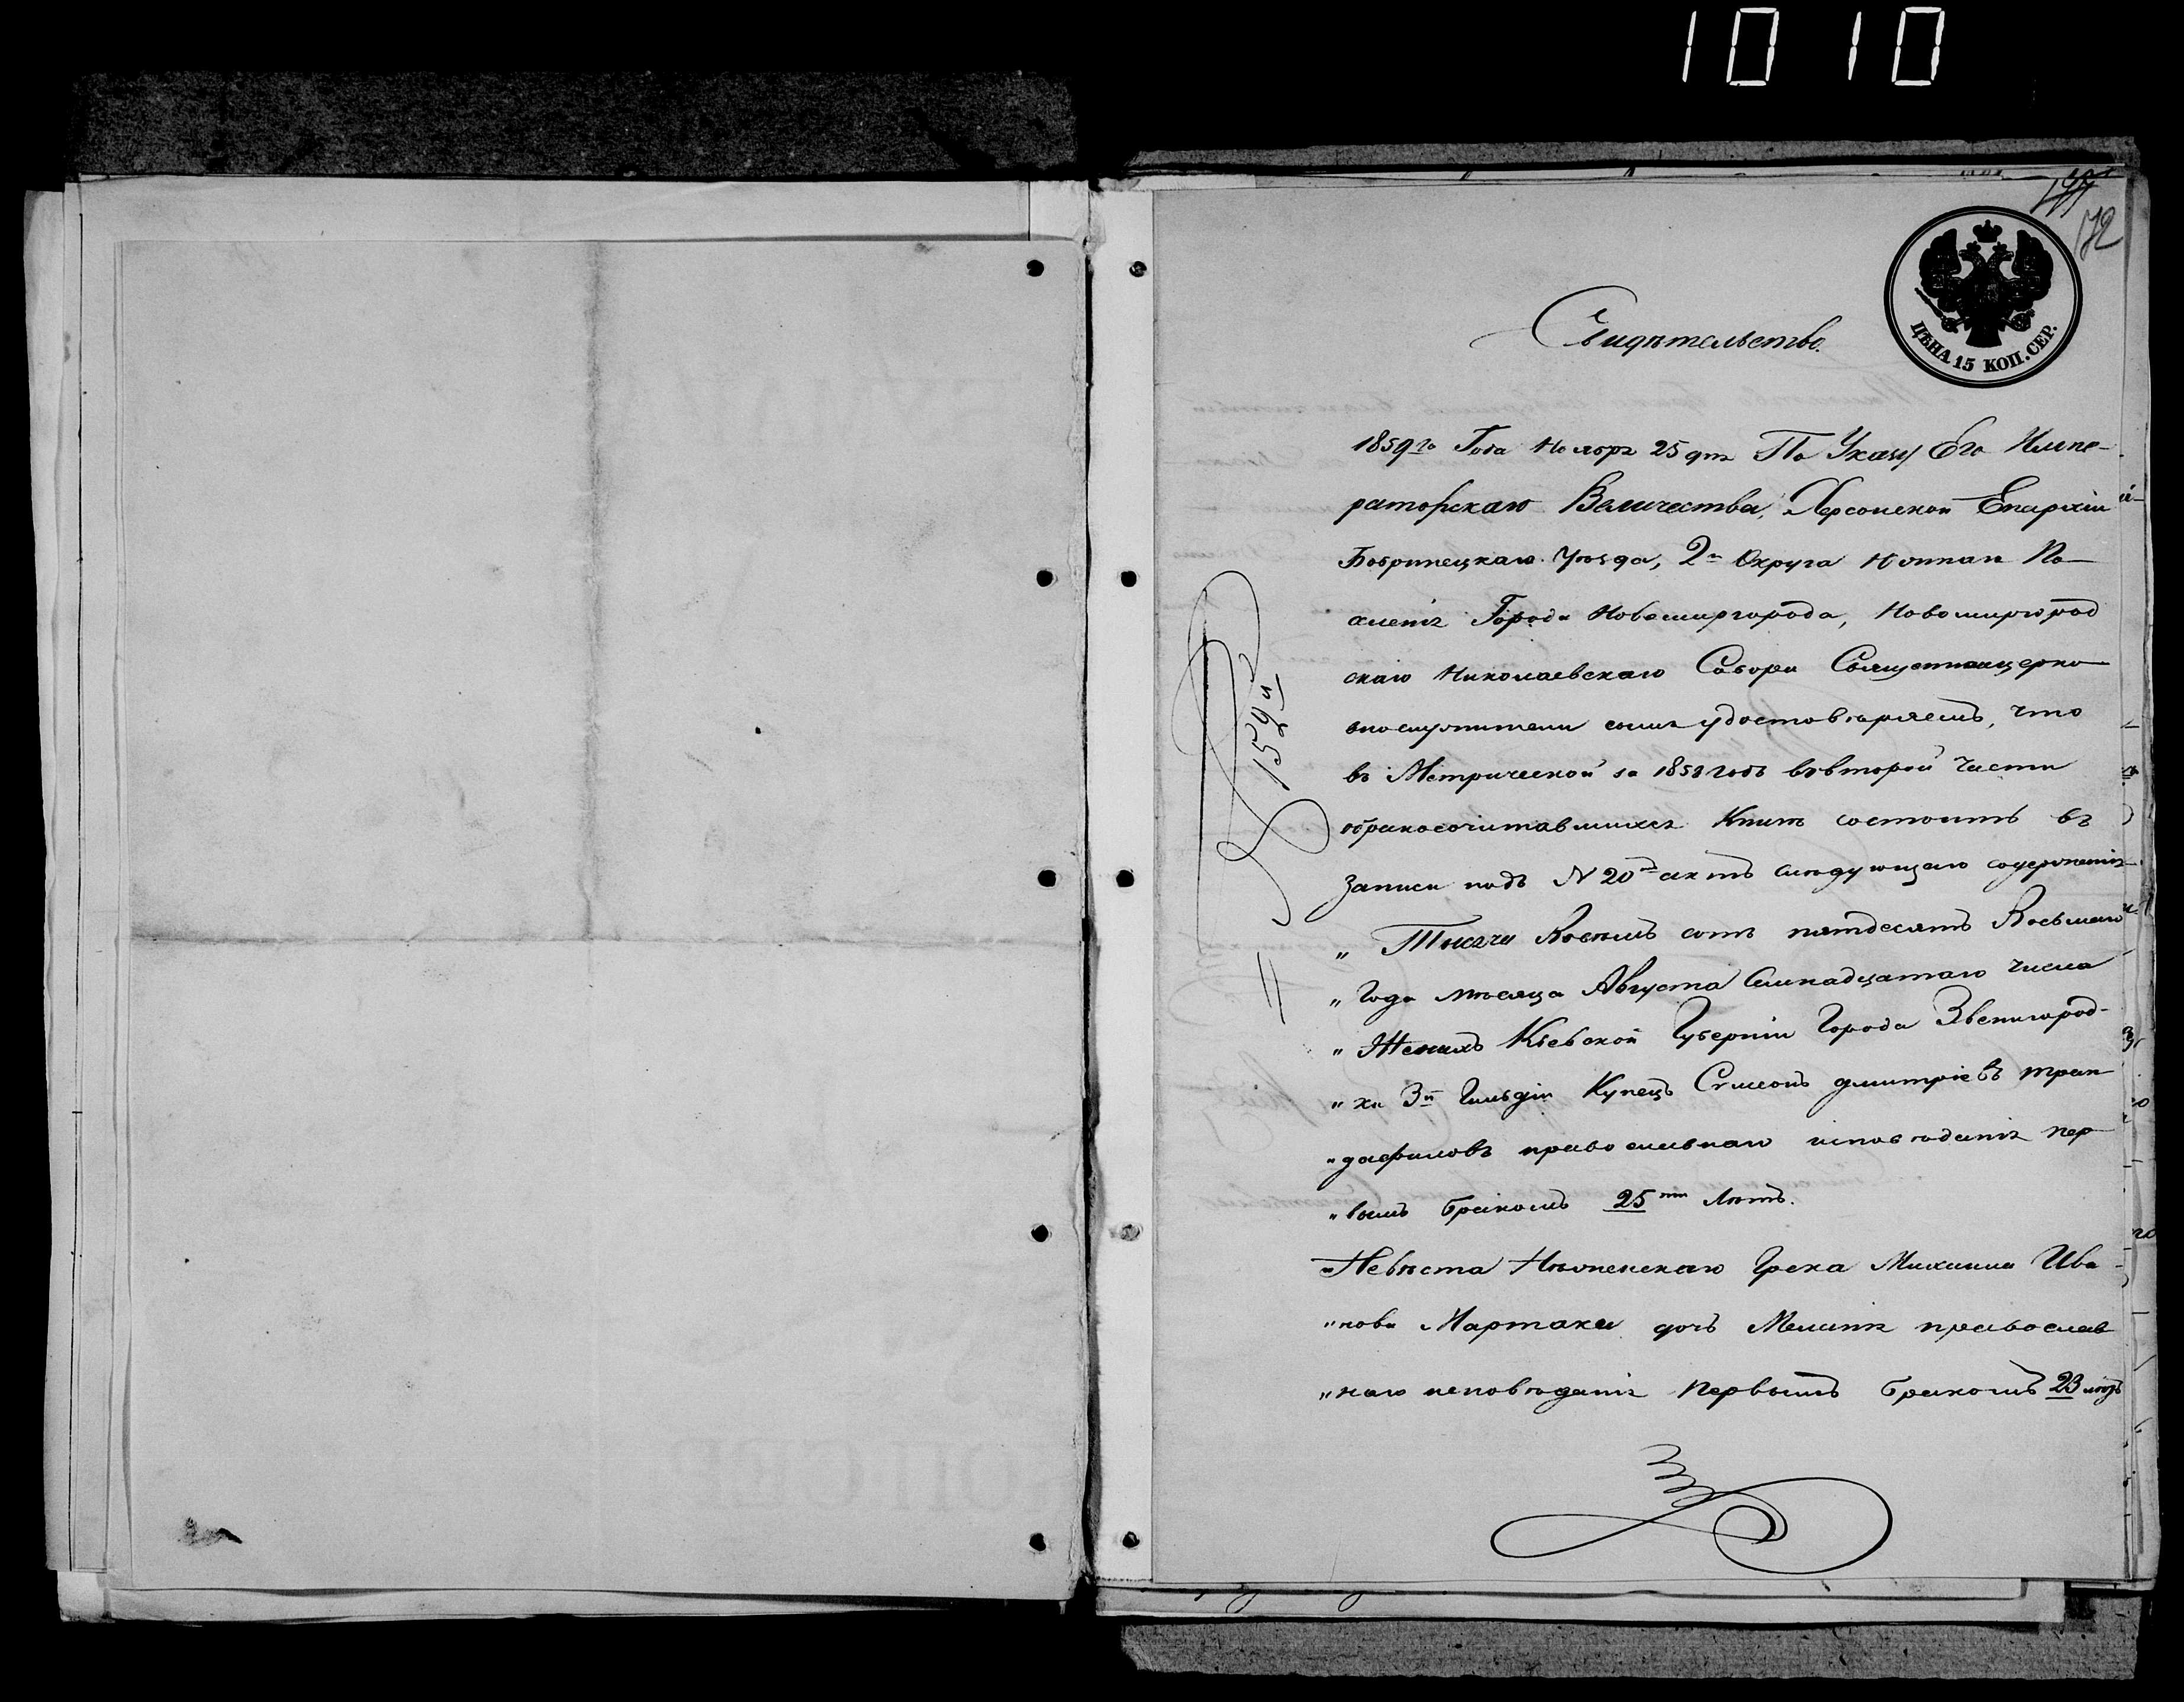 1010
172
Свидѣтельство.
ЦѢНА 15 КОП. СЕР.
1859го Года Ноября 25 дня По Указу Его Импе-
раторскаго Величества, Херсонской Епархіи
Бобринецкаго Уѣзда, 2го Округа По-
селенія Города Новомиргорода, Новомиргород
скаго Николаевскаго Собора Священноцерко
внослужители симъ удостовѣряемъ, что
въ Метрической за 1858 годъ во второй части
бракосочитавшихся Книгѣ состоитъ въ
Записи подъ N 20мъ актъ слѣдующаго содержанія
„ Тысяча Восемь сотъ пятдесятъ Восьмаго
„ Года мѣсяца Августа Семнадцатаго числа
„ Женихъ Кіевской Губерніи Города Звенигород-
„ ки 3й Гильдіи Купецъ Симеонъ Дмитріевъ Тран
„ дафиловъ православнаго исповѣданія пер
„ вымъ бракомъ 25ти Лѣтъ.
„ Невѣста Нѣжинскаго Грека Михаила Ива-
„ нова Мартаки дочь Меланія православ
„ наго исповѣданія первымъ бракомъ 23 лѣтъ